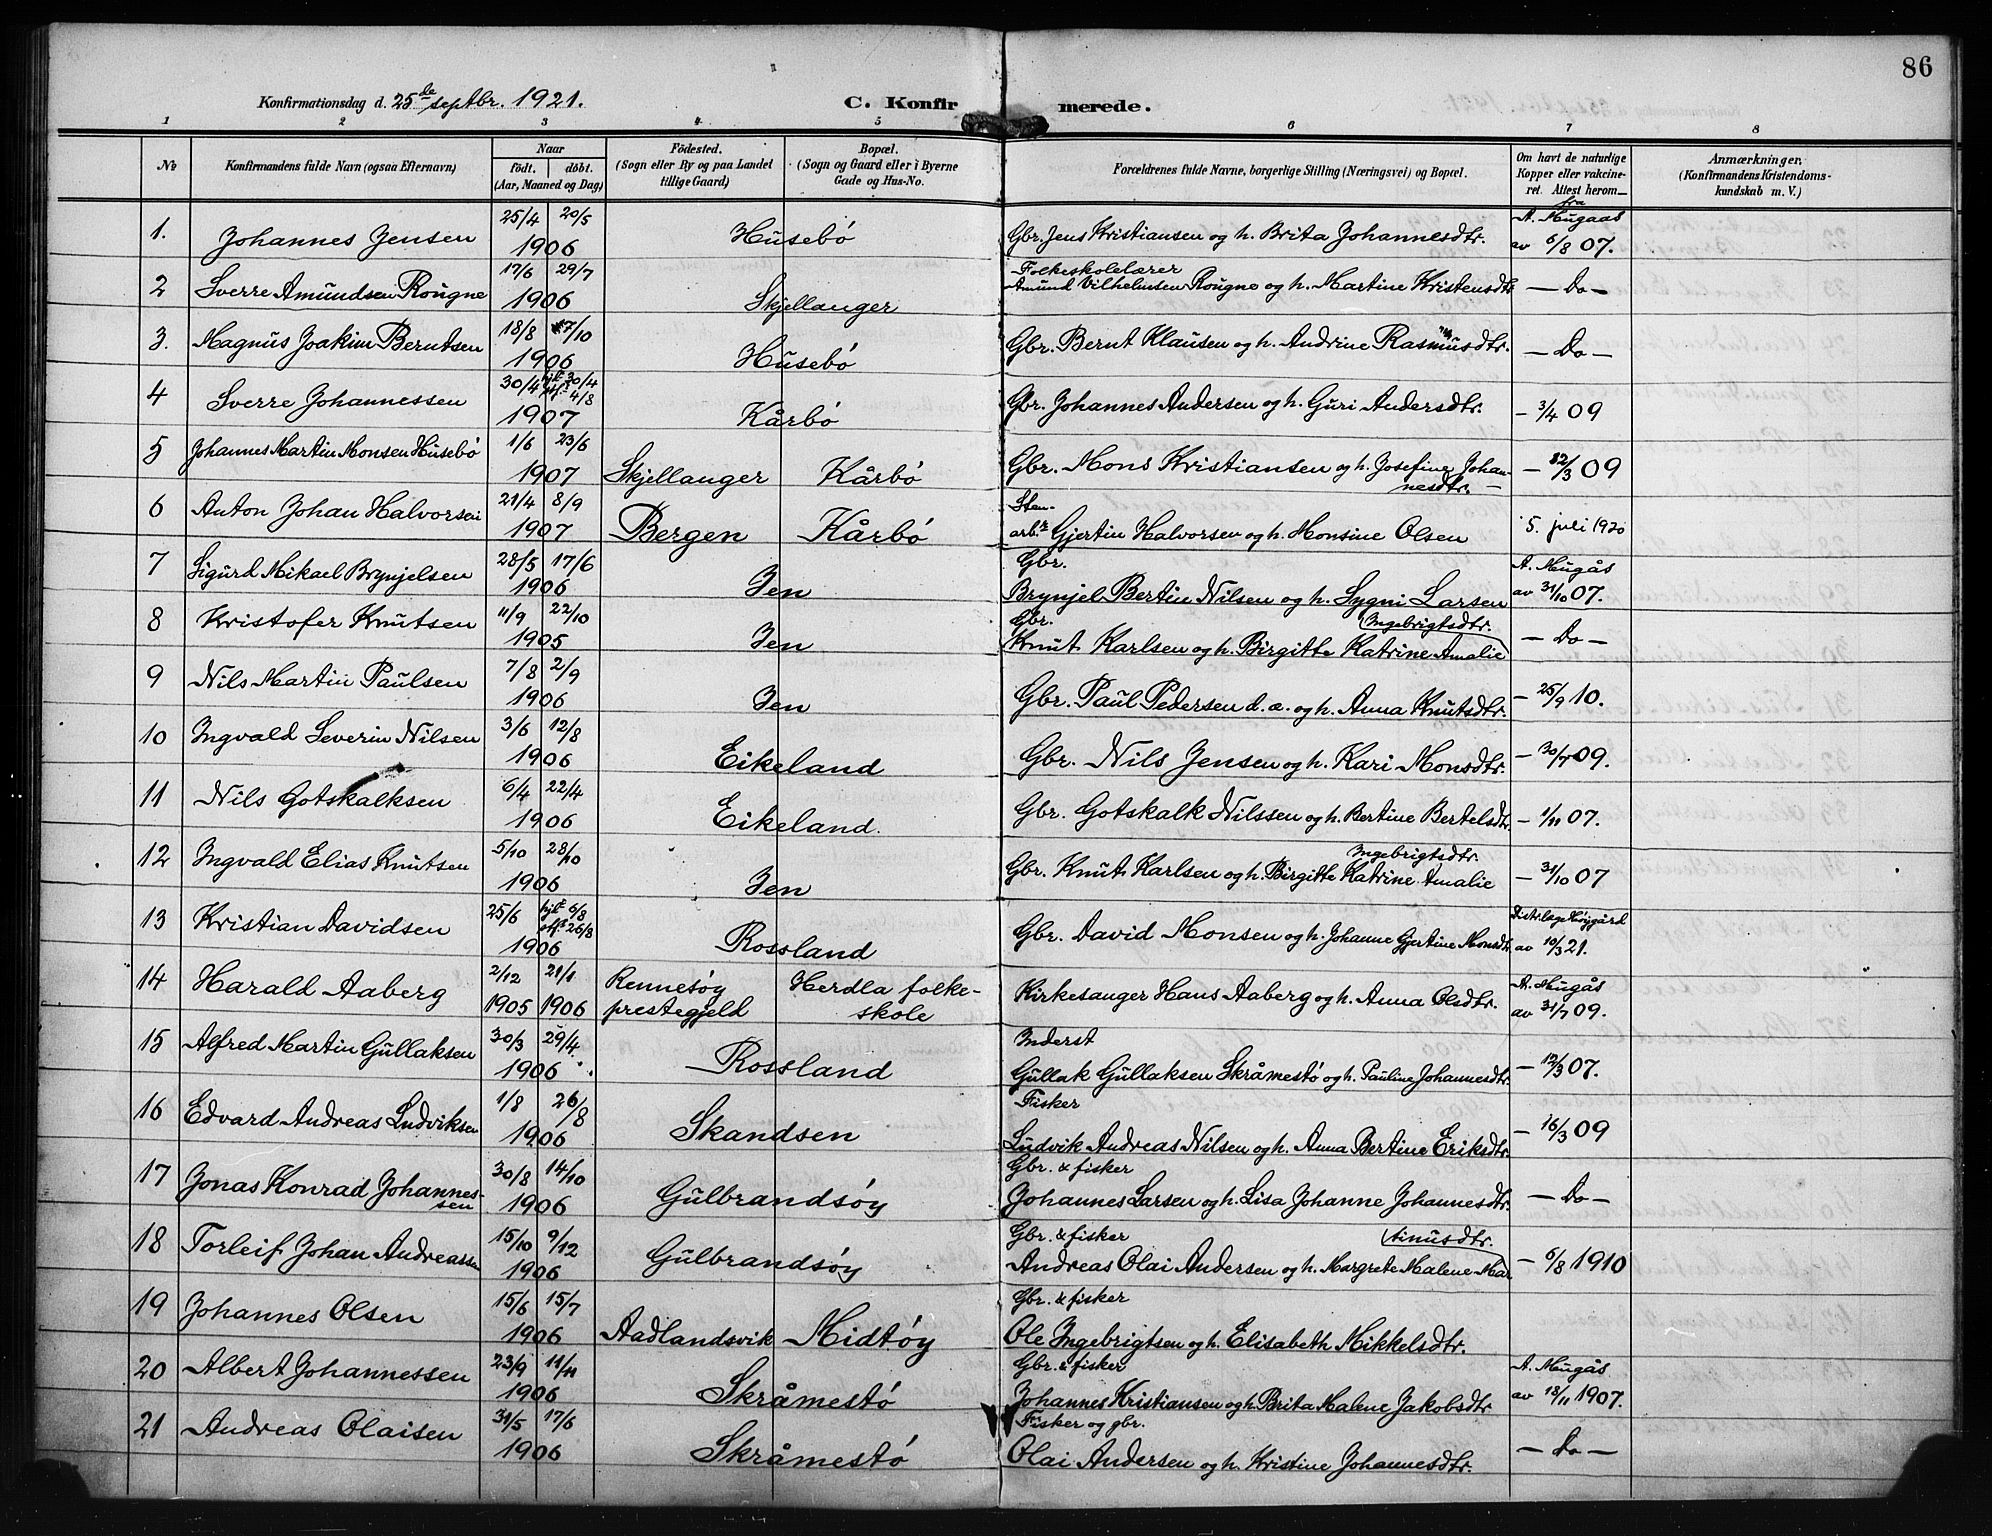 86
Konfirmationsdag d. 25de septbr. 1921. C. Konfirmerede.
1 2 3 4 5 6 7 8
No Konfirmandens fulde Navn (ogsaa Efternavn) Naar født. døbt. (Aar, Maaned og Dag) Födested. (Sogn eller By og paa Landet tillige Gaard) Bopæl. (Sogn og Gaard eller i Byerne Gade og Hus-No. Forældrenes fulde Navne, borgerlige Stilling (Næringsvei) og Bopæl. Om havt de naturlige Kopper eller vakcineret. Attest herom fra Anmærkninger. (Konfirmandens Kristendomskundskab m. V.)
1. Johannes Jensen 25/4 20/5 1906 Husebö Gbr. Jens Kristiansen og h. Brita Johannesdtr. A. Mugaas av 6/8 07.
2 Sverre Amundsen Rougne 17/6 29/7 1906 Skjellanger Folkeskolelærer Amund Vilhelmsen Rougne og h. Martine Kristensdtr. — Do —
3. Magnus Joakim Berntsen 18/8 7/10 1906 Husebö Gbr. Bernt Klausen og h. Andrine Rasmusdtr. — Do —
4 Sverre Johannessen 30/4 hjt 30/4 stf. 4/8 1907 Kårbö Gbr. Johannes Andersen og h. Guri Andersdtr. — 3/4 09
5 Johannes Martin Monsen Husebö 1/6 23/6 1907 Skjellanger Kårbö Gbr. Mons Kristiansen og h. Josefine Johannesdtr. — /3 09
6 Anton Johan Halvorsen 21/4 8/9 1907 Bergen Kårbö Stenarbr. Gjertin Halvorsen og h. Monsine Olsen 5. juli 1920
7 Sigurd Mikael Brynjelsen 28/5 17/6 1906 Jen Gbr. Brynjel Bertin Nilsen og h. Sygni Larsen A. Mugås av 31/10 07.
8 Kristofer Knutsen 11/9 22/10 1905 Jen Gbr. Knut Karlsen og h. Birgitte Katrine Amalie Ingebrigtsdtr. — Do —
9 Nils Martin Paulsen 7/8 2/9 1906 Jen Gbr. Paul Pedersen d. æ. og h. Anna Knutsdtr. — 25/9 10.
10 Ingvald Severin Nilsen 3/6 12/8 1906 Eikeland Gbr. Nils Jensen og h. Kari Monsdtr. — 30/7 09.
11 Nils Gotskalksen 6/4 22/4 1906 Eikeland. Gbr. Gotskalk Nilssen og h. Bertine Bertelsdtr. — 1/11 07.
12 Ingvald Elias Knutsen 5/10 28/10 1906 Jen Gbr. Knut Karlsen og h. Birgitte Katrine Amalie Ingebrigtsdtr. — 31/10 07
13 Kristian Davidsen 25/6 hjt 6/8 stf. 26/8 1906 Rossland Gbr. David Monsen og h. Johanne Gjertine Monsdtr. Distr.læge Høygård av 10/3 21.
14 Harald Aaberg 2/12 1905 21/1 1906 Rennesöy prestegjeld Herdla folkeskole Kirkesanger Hans Aaberg og h. Anna Olsdtr. A. Mugås av 31/7 09.
15 Alfred Martin Gullaksen 30/3 29/4 1906 Rossland Inderst Gullak Gullaksen Skråmestö og h. Pauline Johannesdtr. — 12/3 07.
16 Edvard Andreas Ludviksen 1/8 26/8 1906 Skandsen Fisker Ludvik Andreas Nilsen og h. Anna Bertine Eriksdtr. — 16/3 09
17 Jonas Konrad Johannessen 30/8 14/10 1906 Gulbrandsöy Gbr. & fisker Johannes Larsen og h. Lisa Johanne Johannesdtr. — Do —
18 Torleif Johan Andreassen 15/10 9/12 1906 Gulbrandsöy Gbr. & fisker Andreas Olai Andersen og h. Margrete Malene Martinusdtr. — 6/8 1910
19 Johannes Olsen 15/6 15/7 1906 Aadlandsvik Midtöy Gbr. & fisker Ole Ingebrigtsen og h. Elisabeth Mikkelsdtr.
20 Albert Johannessen 23/9 11/11 1906 Skråmestö Gbr. & fisker Johannes Kristiansen og h. Brita Malene Jakobsdtr. A. Mugås av 18/11 1907.
21 Andreas Olaisen 31/5 17/6 1906 Skråmestö Fisker og gbr. Olai Andersen og h. Kristine Johannesdtr. — Do —